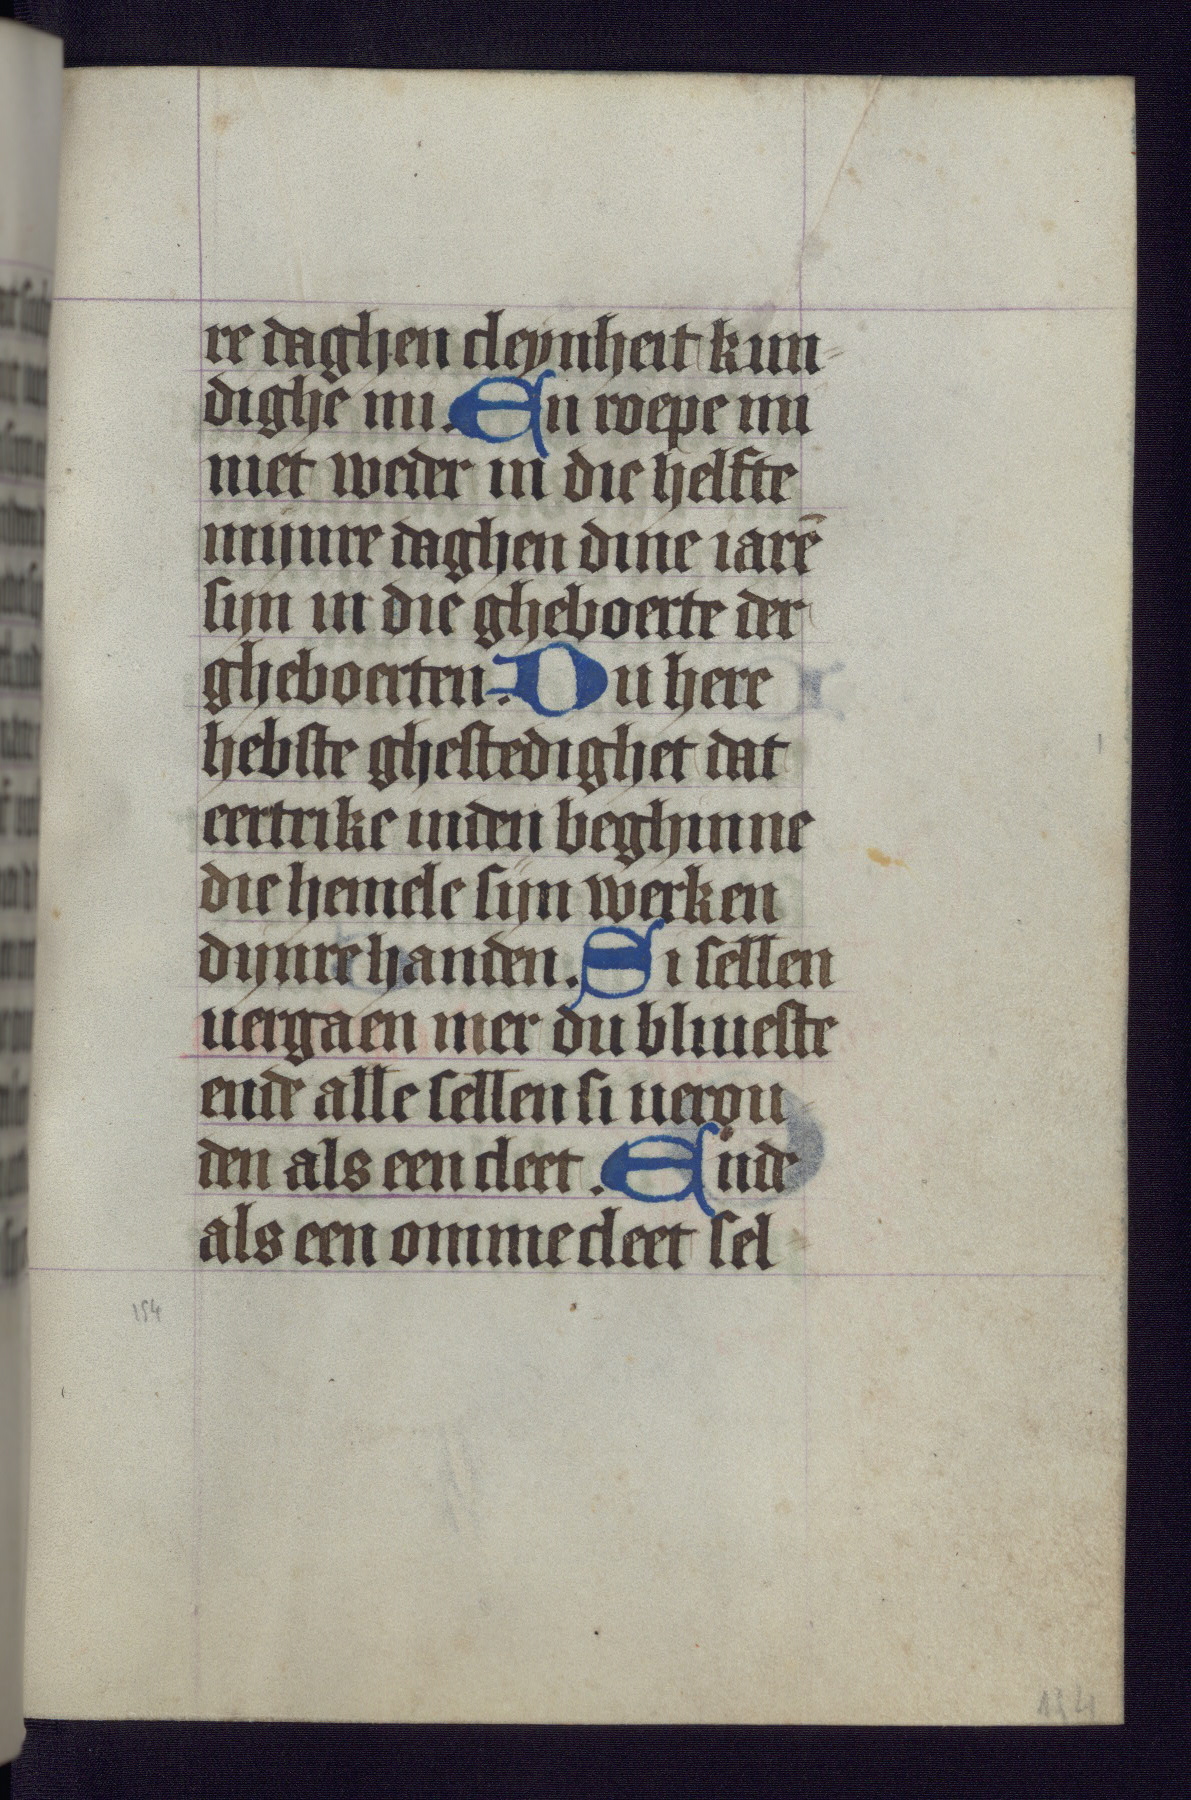 re daghen cleynheit kun-
dighe mi. En roepe mi
niet weder in die helfte
mijnre daghen dine iarē
sijn in die gheboerte der
gheboerten. Du here
hebste ghestedighet dat
eertrike inden beghinne
die hemele sijn werken
dijnre handen. Si sellen
uergaen mer du bliueste
ende alle sellen si uerou
den als een cleet. Ende
als een ommecleet sel
154
154